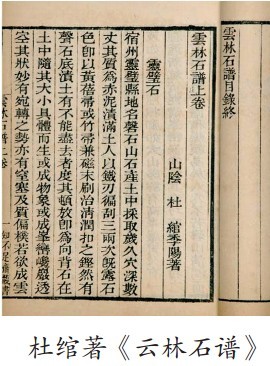 雲林石譜目錄終
雲林石譜上卷
山陰 杜 綰季陽著
靈璧石
宿州靈璧縣地名磬石山石產土中採取歲久穴深數
丈其質為赤泥漬滿土人以鐵刃徧刮三兩次既露石
色即以黃蓓帚或竹帚兼磁末刷治清潤扣之鏗然有
聲石底漬土有不能盡去者度其頓放即為向背石在
土中隨其大小具體而生或成物象或成峯巒巉巖透
空其狀妙有宛轉之勢亦有窒塞及質偏樸若欲成雲
雲林石譜上卷 一 知不足齋叢書
杜绾著《云林石谱》